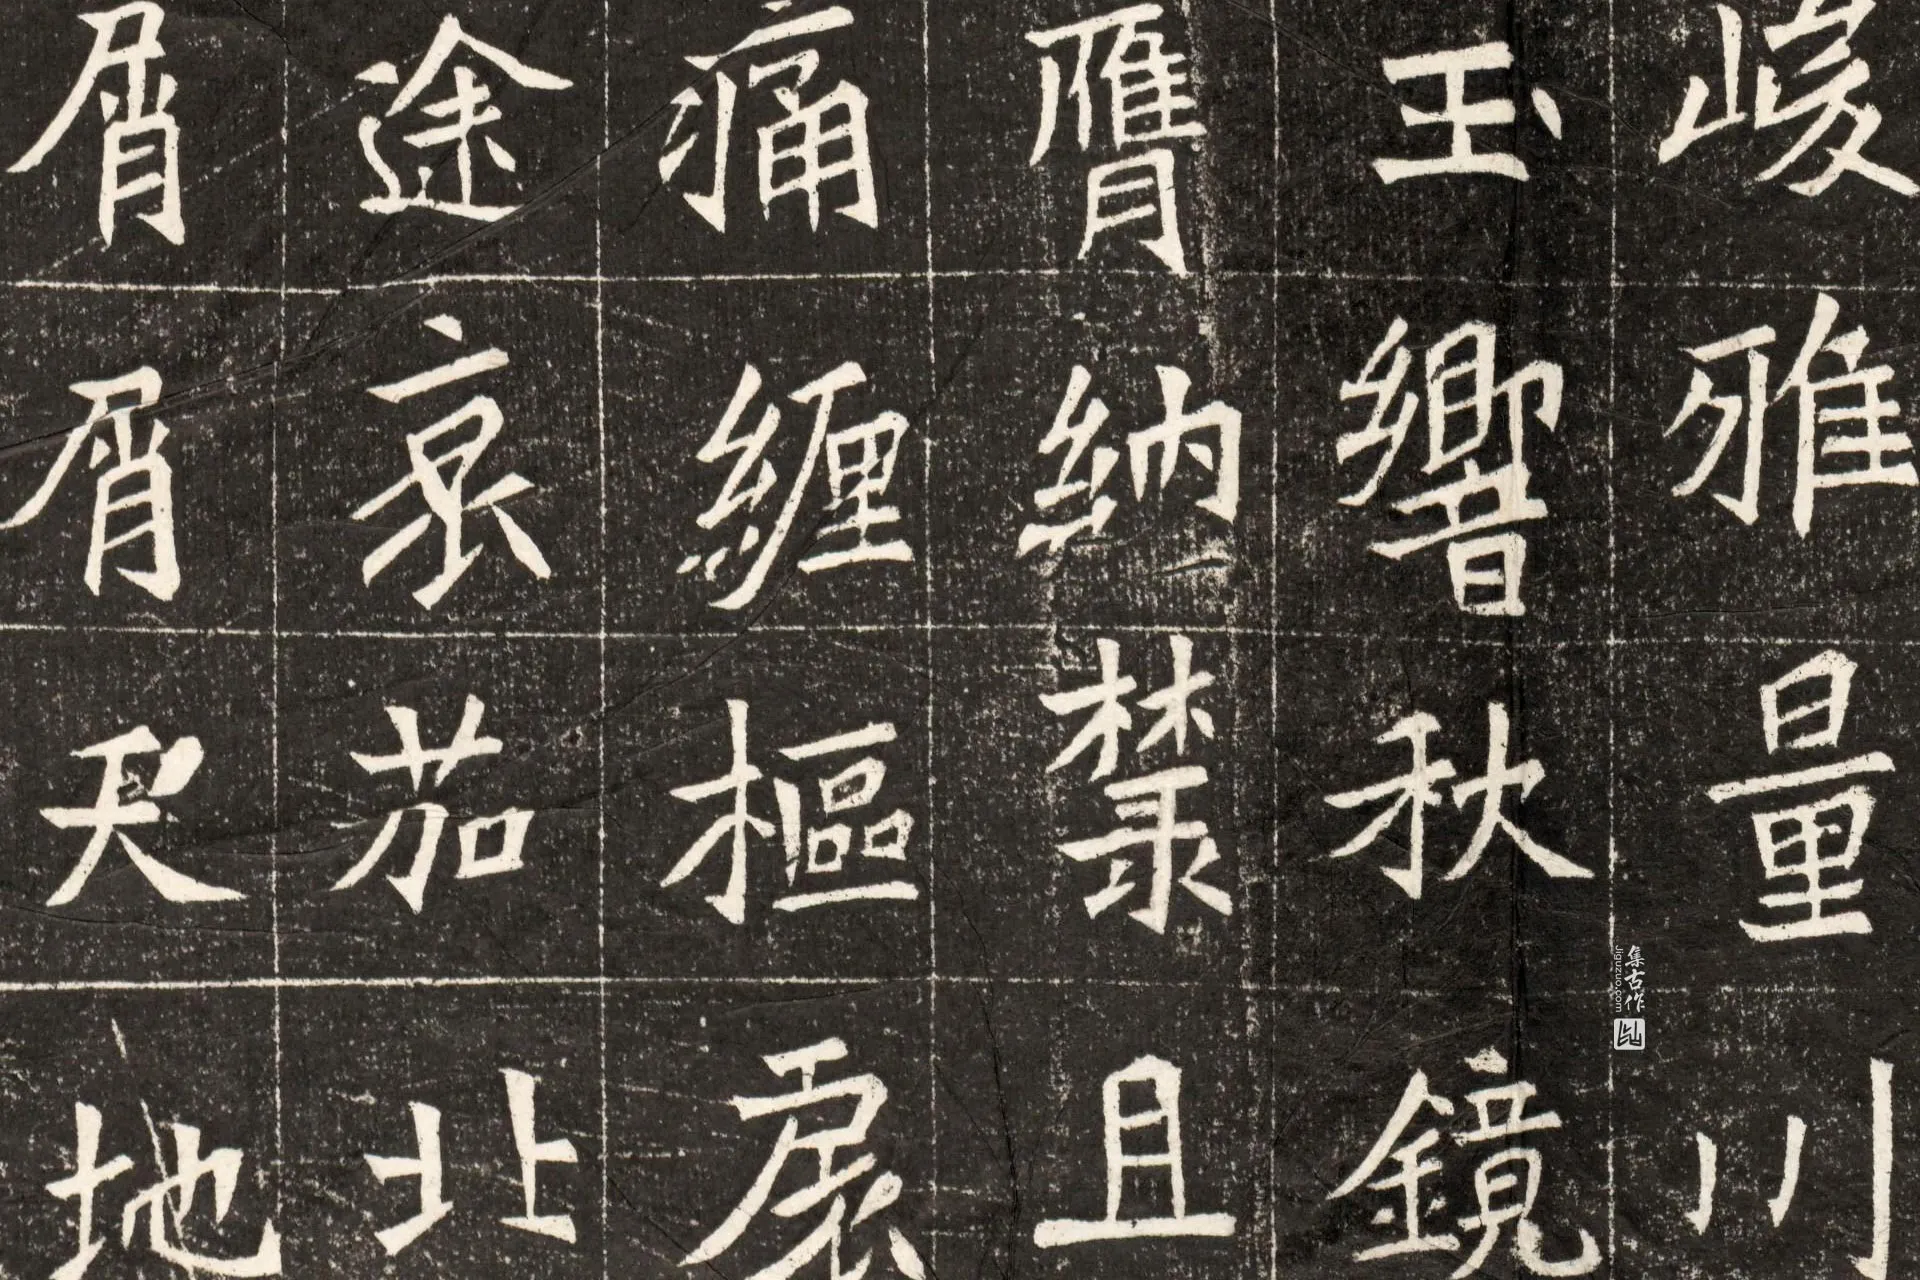 峻雅量川
玉響秋鏡
膺納禁且
痛纏樞扆
途哀茄北
屑屑地
集古作
Jiguzuo.com